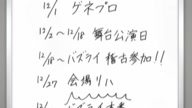 12/1 ゲネプロ
12/2～12/18 舞台公演日
～12/18 バズライブ稽古参加!!
12/27 会場リハ